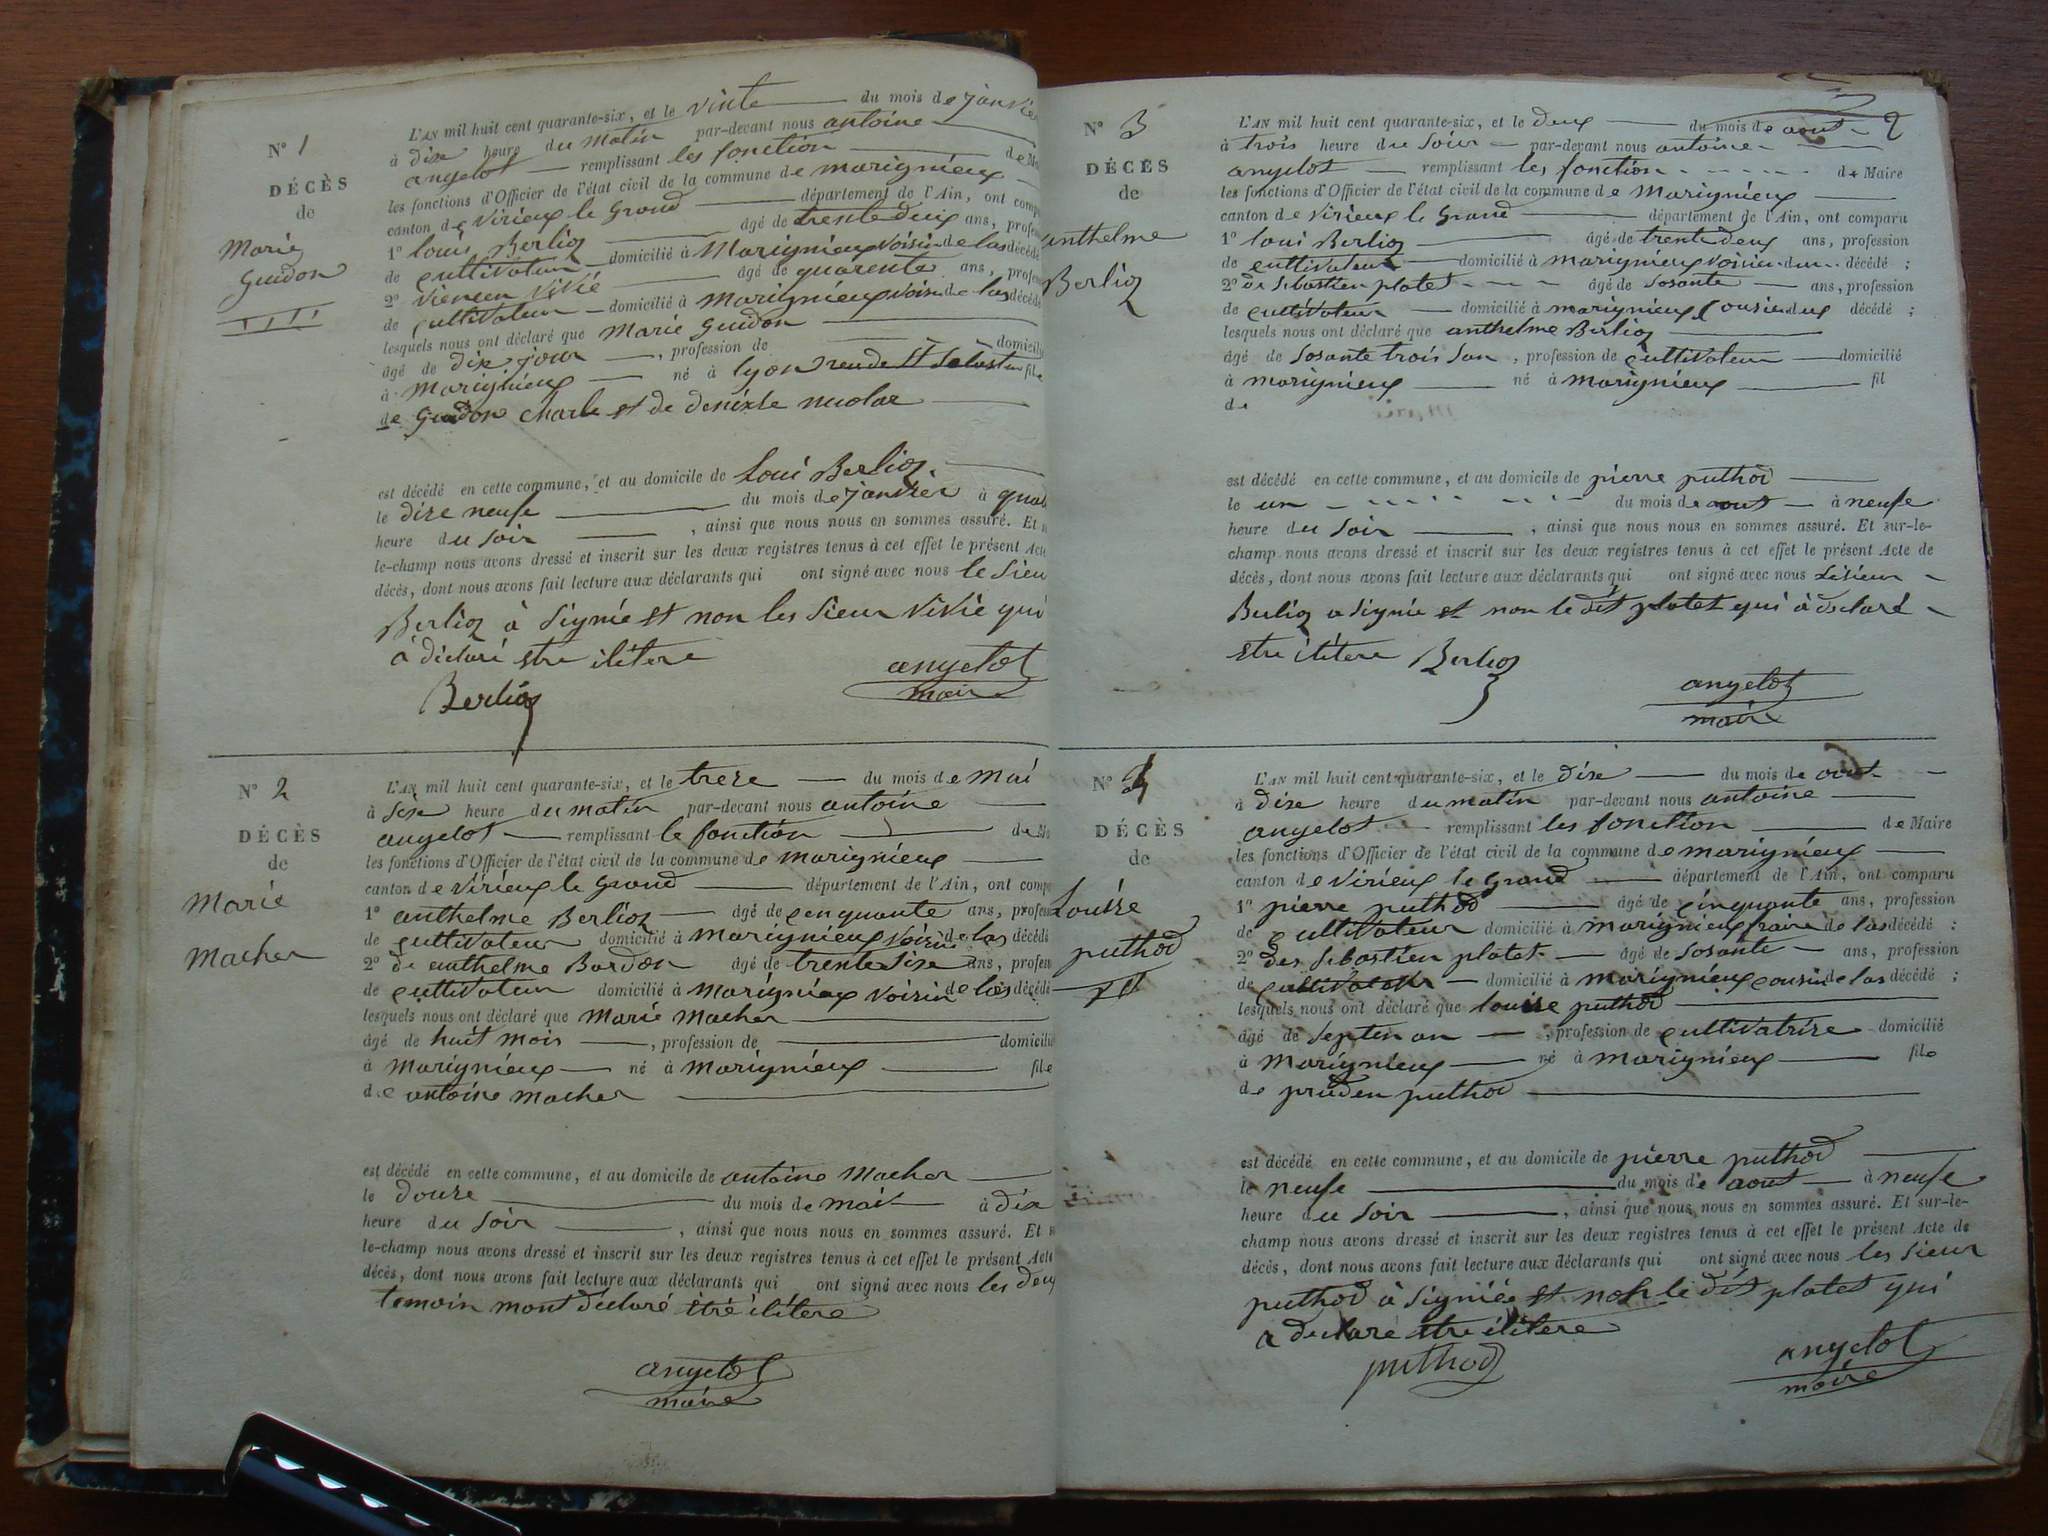 N° 1
DÉCÈS
de
Marie
Guidon
L'AN mil huit cent quarante-six, et le vinte du mois de janvier
à dixe heure du matin par-devant nous antoine
angelot remplissant les fonction de
les fonctions d'Officier de l'état civil de la commune de marignieux
canton de virieux le Grand département de l'Ain, ont
1° loui Berlioz âgé de trente deux ans,
de cultivateur domicilié à Marignieux voisin de las décédé
2° vivié âgé de quarente ans,
de cultivateur domicilié à Marignieux voisin de las décédé
lesquels nous ont déclaré que Marie Guidon
âgé de dixe jour , profession de domicilié
à Marignieux né à lyon St Sebastien file
de Guidon Charle et de
est décédé en cette commune, et au domicile de Loui Berlioz
le dixe neufe du mois de janvier à
heure du soir , ainsi que nous nous en sommes assuré. Et
le-champ nous avons dressé et inscrit sur les deux registres tenus à cet effet le présent Acte
décès, dont nous avons fait lecture aux déclarants qui ont signé avec nous le sieu
Berlioz à signié et non les sieur vivié qui
à déclaré etre ilitere
angelot
maire
Berlioz
N° 2
DÉCÈS
de
Marie
Macher
L'AN mil huit cent quarante-six, et le treze du mois de Mai
à sixe heure du matin par-devant nous antoine
angelot remplissant le fonction de
les fonctions d'Officier de l'état civil de la commune de marignieux
canton de virieux le Grand département de l'Ain, ont
1° anthelme Berlioz âgé de cenquante ans,
de cultivateur domicilié à Marignieux voisin de las décédé
2° de anthelme Bardon âgé de trente sixe ans,
de cultivateur domicilié à Marignieux voisin de las décédé
lesquels nous ont déclaré que Marie Macher
âgé de huit mois , profession de domicilié
à Marignieux né à Marignieux file
de antoine Macher
est décédé en cette commune, et au domicile de antoine Macher
le douze du mois de mait à dix
heure du soir , ainsi que nous nous en sommes assuré. Et
le-champ nous avons dressé et inscrit sur les deux registres tenus à cet effet le présent Acte
décès, dont nous avons fait lecture aux déclarants qui ont signé avec nous les deux
temoin mont déclaré être ilitere
angelot
maire
2
N° 3
DÉCÈS
de
anthelme
Berlioz
L'AN mil huit cent quarante-six, et le deux du mois de aout
à trois heure du soir par-devant nous antoine
angelot remplissant les fonction de Maire
les fonctions d'Officier de l'état civil de la commune de Marignieux
canton de virieux le Grand département de l'Ain, ont comparu
1° loui Berlioz âgé de trente deux ans, profession
de cultivateur domicilié à marignieux voisin décédé ;
2° de sebastien platet âgé de sosante ans, profession
de cultivateur domicilié à marignieux cousin décédé ;
lesquels nous ont déclaré que anthelme Berlioz
âgé de sosante trois san , profession de cultivateur domicilié
à marignieux né à marignieux fil
de
est décédé en cette commune, et au domicile de pierre puthod
le un du mois de aout à neufe
heure du soir , ainsi que nous nous en sommes assuré. Et sur-le-
champ nous avons dressé et inscrit sur les deux registres tenus à cet effet le présent Acte de
décès, dont nous avons fait lecture aux déclarants qui ont signé avec nous
Berlioz a signié et non le dit platet qui à declaré
etre ilitere Berlioz
angelot
maire
N° 4
DÉCÈS
de
Louise
puthod
L'AN mil huit cent quarante-six, et le dixe du mois de aout
à dixe heure du matin par-devant nous antoine
angelot remplissant les fonction de Maire
les fonctions d'Officier de l'état civil de la commune de marignieux
canton de virieux le Grand département de l'Ain, ont comparu
1° pierre puthod âgé de cinquante ans, profession
de cultivateur domicilié à marignieux fraire de las décédé :
2° des sebastien platet âgé de sosante ans, profession
de cultivateur domicilié à marignieux cousin de las décédé ;
lesquels nous ont déclaré que louise puthod
âgé de septen an , profession de cultivatrise domicilié
à Marignieux né à Marignieux file
de pruden puthod
est décédé en cette commune, et au domicile de pierre puthod
le neufe du mois de aout à neufe
heure du soir , ainsi que nous nous en sommes assuré. Et sur-le-
champ nous avons dressé et inscrit sur les deux registres tenus à cet effet le présent Acte de
décès, dont nous avons fait lecture aux déclarants qui ont signé avec nous les sieur
puthod à signiée et non le dit platet qui
a declare etre ilitere
puthod
angelot
maire